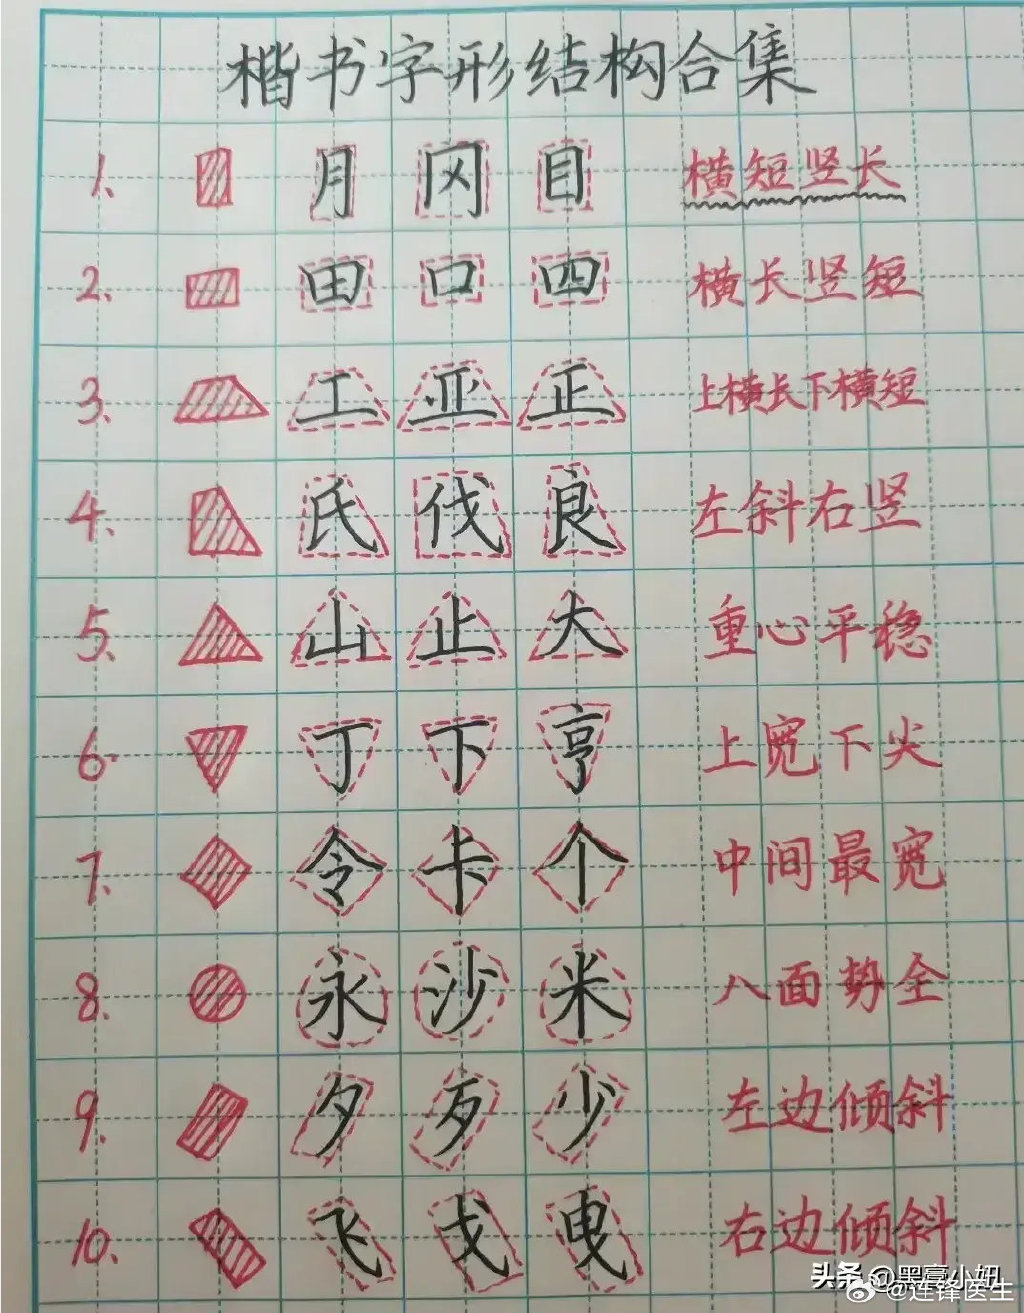 楷书字形结构合集
1. 月 冈 目 横短竖长
2. 田 口 四 横长竖短
3. 工 亚 正 上横长下横短
4. 氏 伐 良 左斜右竖
5. 山 止 大 重心平稳
6. 丁 下 亨 上宽下尖
7. 令 卡 个 中间最宽
8. 永 沙 米 八面势全
9. 夕 歹 少 左边倾斜
10. 飞 戈 曳 右边倾斜
头条 @黑膏小妞
@连锋医生